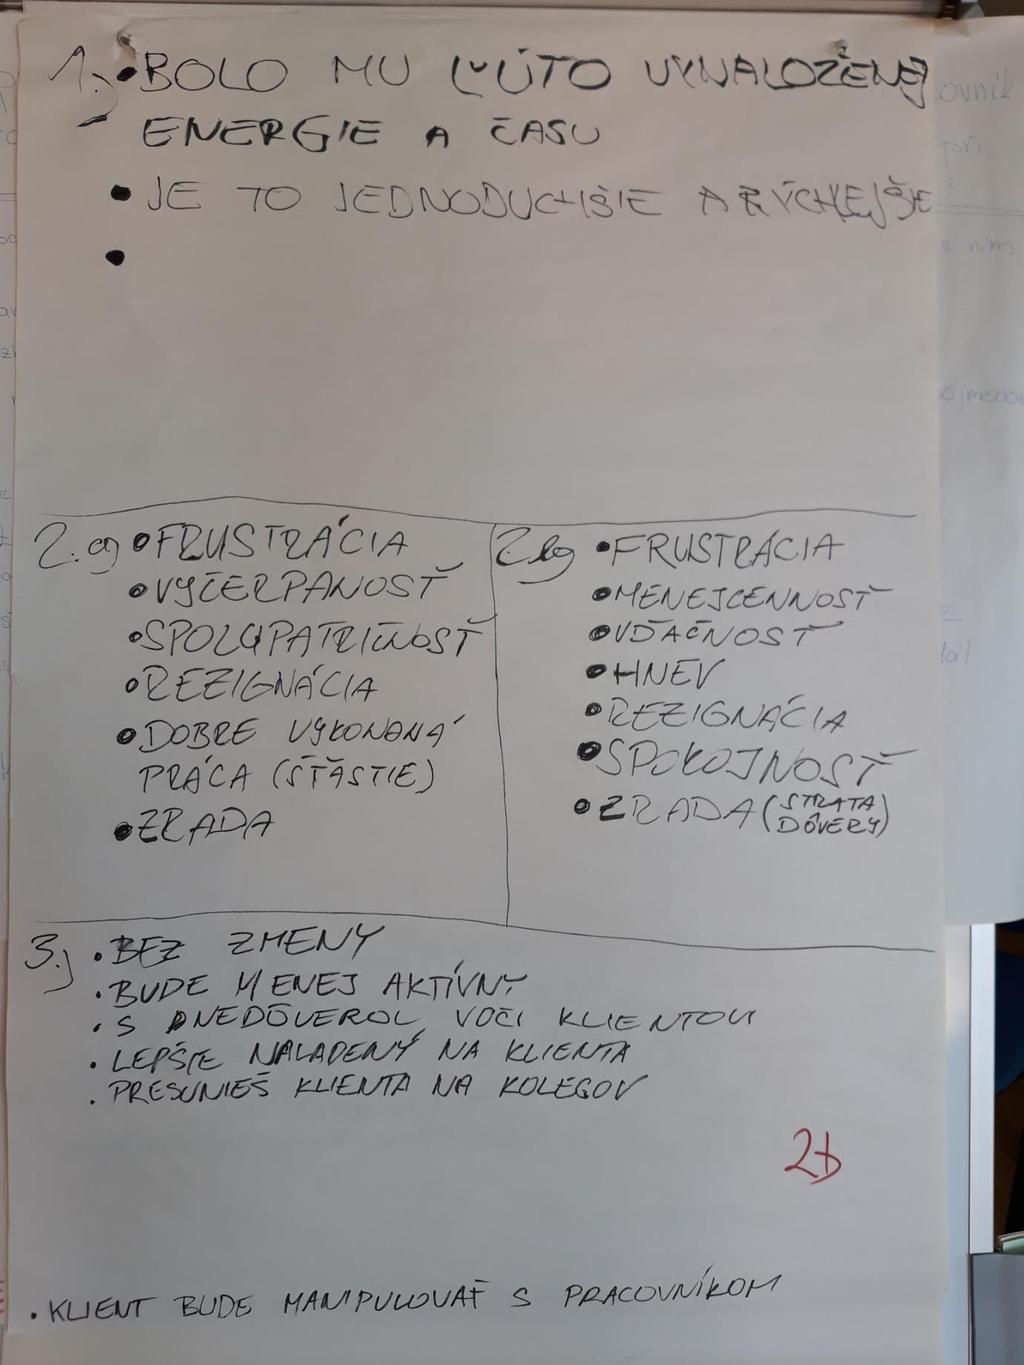 1.) • BOLO MU ĽÚTO VYNALOŽENEJ
ENERGIE A ČASU
• JE TO JEDNODUCHŠIE A RÝCHLEJŠIE
•
2.a) • FRUSTRÁCIA
• VYČERPANOSŤ
• SPOLUPATRIČNOSŤ
• REZIGNÁCIA
• DOBRE VYKONANÁ
PRÁCA (ŠŤASTIE)
• ZRADA
2.b) • FRUSTRÁCIA
• MENEJCENNOSŤ
• VĎAČNOSŤ
• HNEV
• REZIGNÁCIA
• SPOKOJNOSŤ
• ZRADA (STRATA
DÔVERY)
3.) • BEZ ZMENY
• BUDE MENEJ AKTÍVNY
• S NEDÔVEROU VOČI KLIENTOVI
• LEPŠIE NALADENÝ NA KLIENTA
• PRESUNIEŠ KLIENTA NA KOLEGOV
2b
• KLIENT BUDE MANIPULOVAŤ S PRACOVNÍKOM
ovník
při
s ním